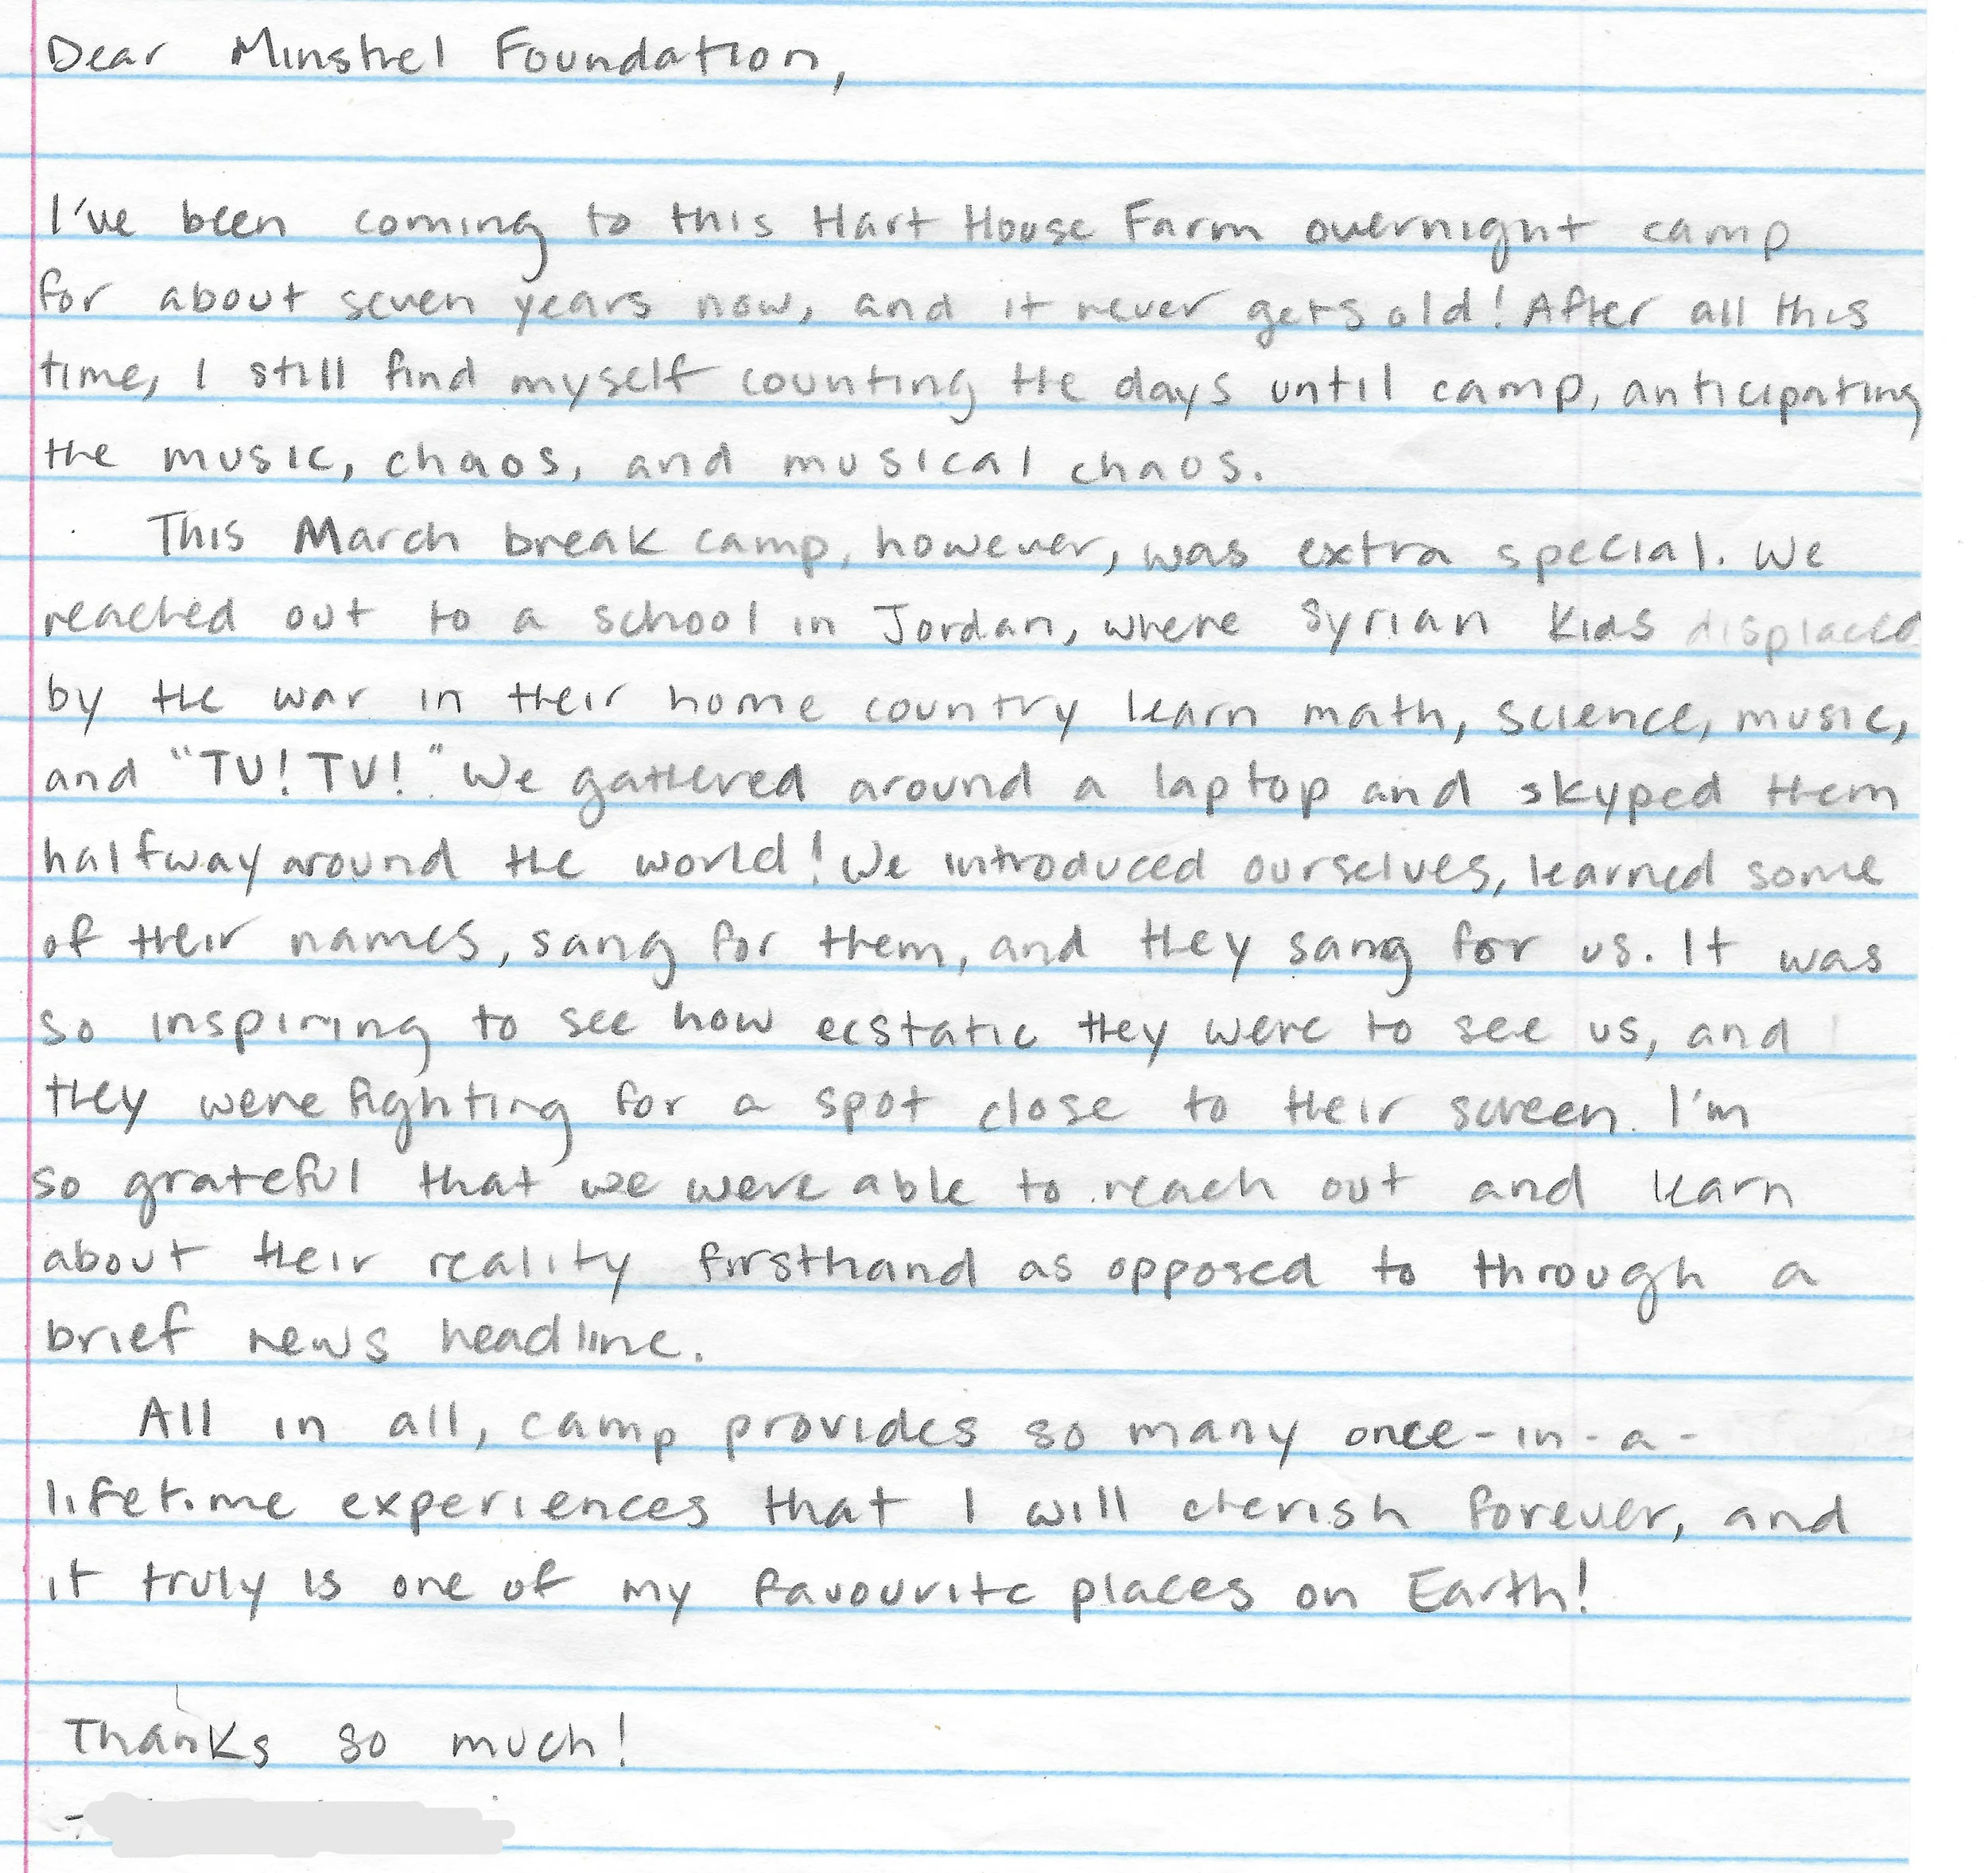 Dear Minstrel Foundation,
I've been coming to this Hart House Farm overnight camp
for about seven years now, and it never gets old! After all this
time, I still find myself counting the days until camp, anticipating
the music, chaos, and musical chaos.
This March break camp, however, was extra special. We
reached out to a school in Jordan, where Syrian kids displaced
by the war in their home country learn math, science, music,
and "TV! TV!" We gathered around a laptop and skyped them
halfway around the world! We introduced ourselves, learned some
of their names, sang for them, and they sang for us. It was
so inspiring to see how ecstatic they were to see us, and
they were fighting for a spot close to their screen. I'm
so grateful that we were able to reach out and learn
about their reality firsthand as opposed to through a
brief news headline.
All in all, camp provides so many once-in-a-
lifetime experiences that I will cherish forever, and
it truly is one of my favourite places on Earth!
Thanks so much!
-